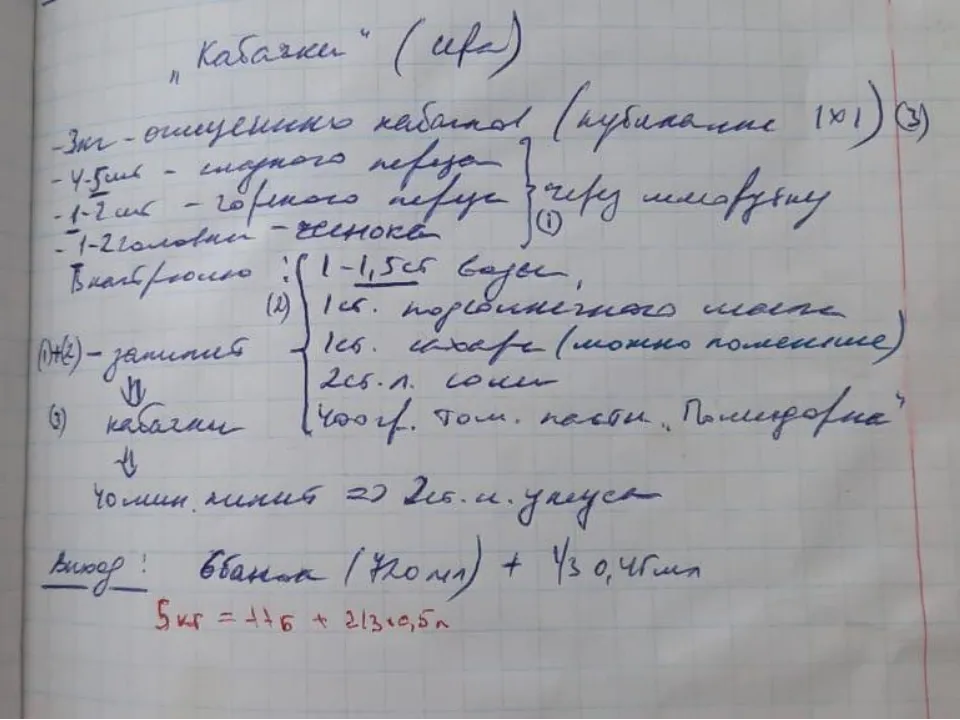 „Кабачки" (ира)
- 3кг - очищенных кабачков (кубиками 1х1) (3)
- 4-5шт - сладкого перца
- 1-2шт - горького перца
- 1-2 головки - чеснока
(1) через мясорубку
В кастрюлю :
(2) 1-1,5ст воды,
1ст. подсолнечного масла
1ст. сахара (можно поменьше)
2ст.л. соли
400гр. том. пасты „Помидорка"
(1)+(2) - закипит
(3) кабачки
40мин. кипит => 2ст.л. уксуса
Выход : 6банок (720мл) + 1/3 0,45мл
5кг = 11б + 2/3х0,5л